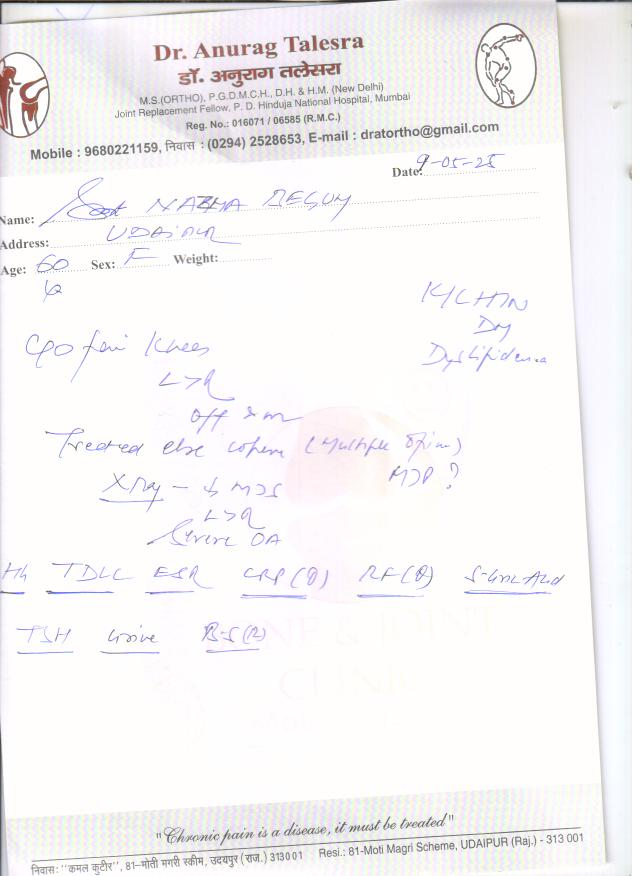 Dr. Anurag Talesra
डॉ. अनुराग तलेसरा
M.S.(ORTHO), P.G.D.M.C.H., D.H. & H.M. (New Delhi)
Joint Replacement Fellow, P. D. Hinduja National Hospital, Mumbai
Reg. No.: 016071 / 06585 (R.M.C.)
Mobile : 9680221159, निवास : (0294) 2528653, E-mail : dratortho@gmail.com
Date: 9-05-25
Name: NAZMA BEGUM
Address: UDAIPUR
Age: 60 Sex: F Weight:
K/C HTN
DM
Dyslipidemia
C/O Pain Knees
L>R
off & on
Treated else where (Multiple Opinion)
X Ray - ↓ MJS
L>R
Severe OA
Hb TDLC ESR CRP(Q) RF(Q) S-Uric Acid
TSH Urine B-S(R)
BONE & JOINT
CLINIC
"Chronic pain is a disease, it must be treated"
निवास: "कमल कुटीर", 81-मोती मगरी स्कीम, उदयपुर (राज.) 313001 Resi.: 81-Moti Magri Scheme, UDAIPUR (Raj.) - 313 001